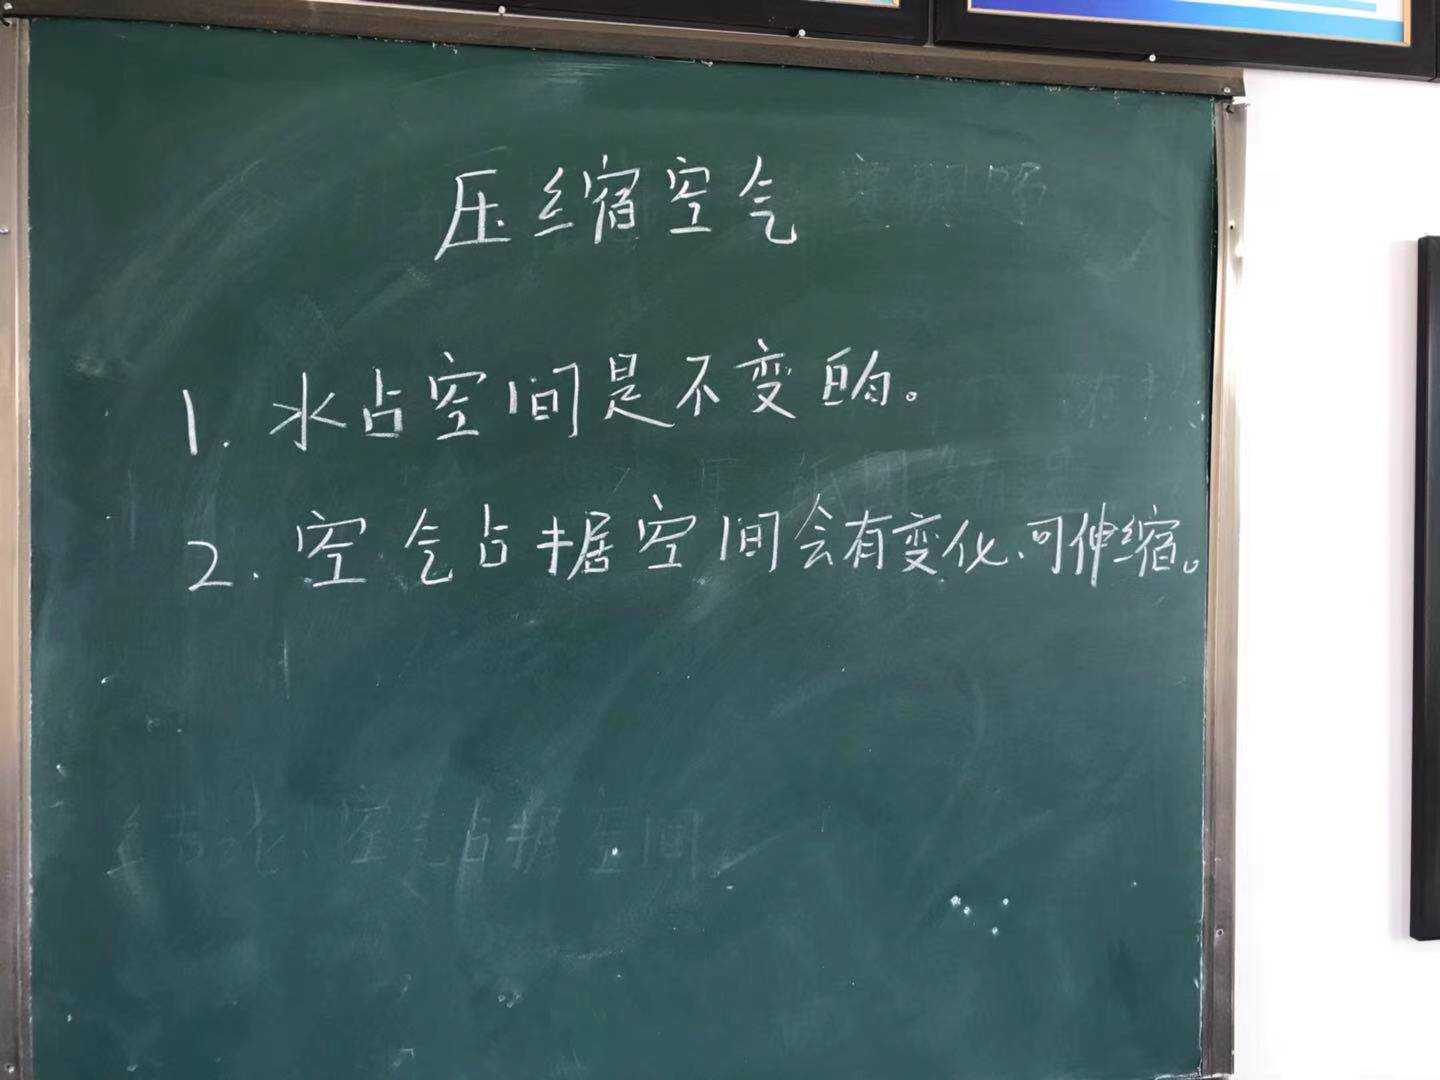 压缩空气
1. 水占空间是不变的。
2. 空气占据空间会有变化、可伸缩。
空气占据空间